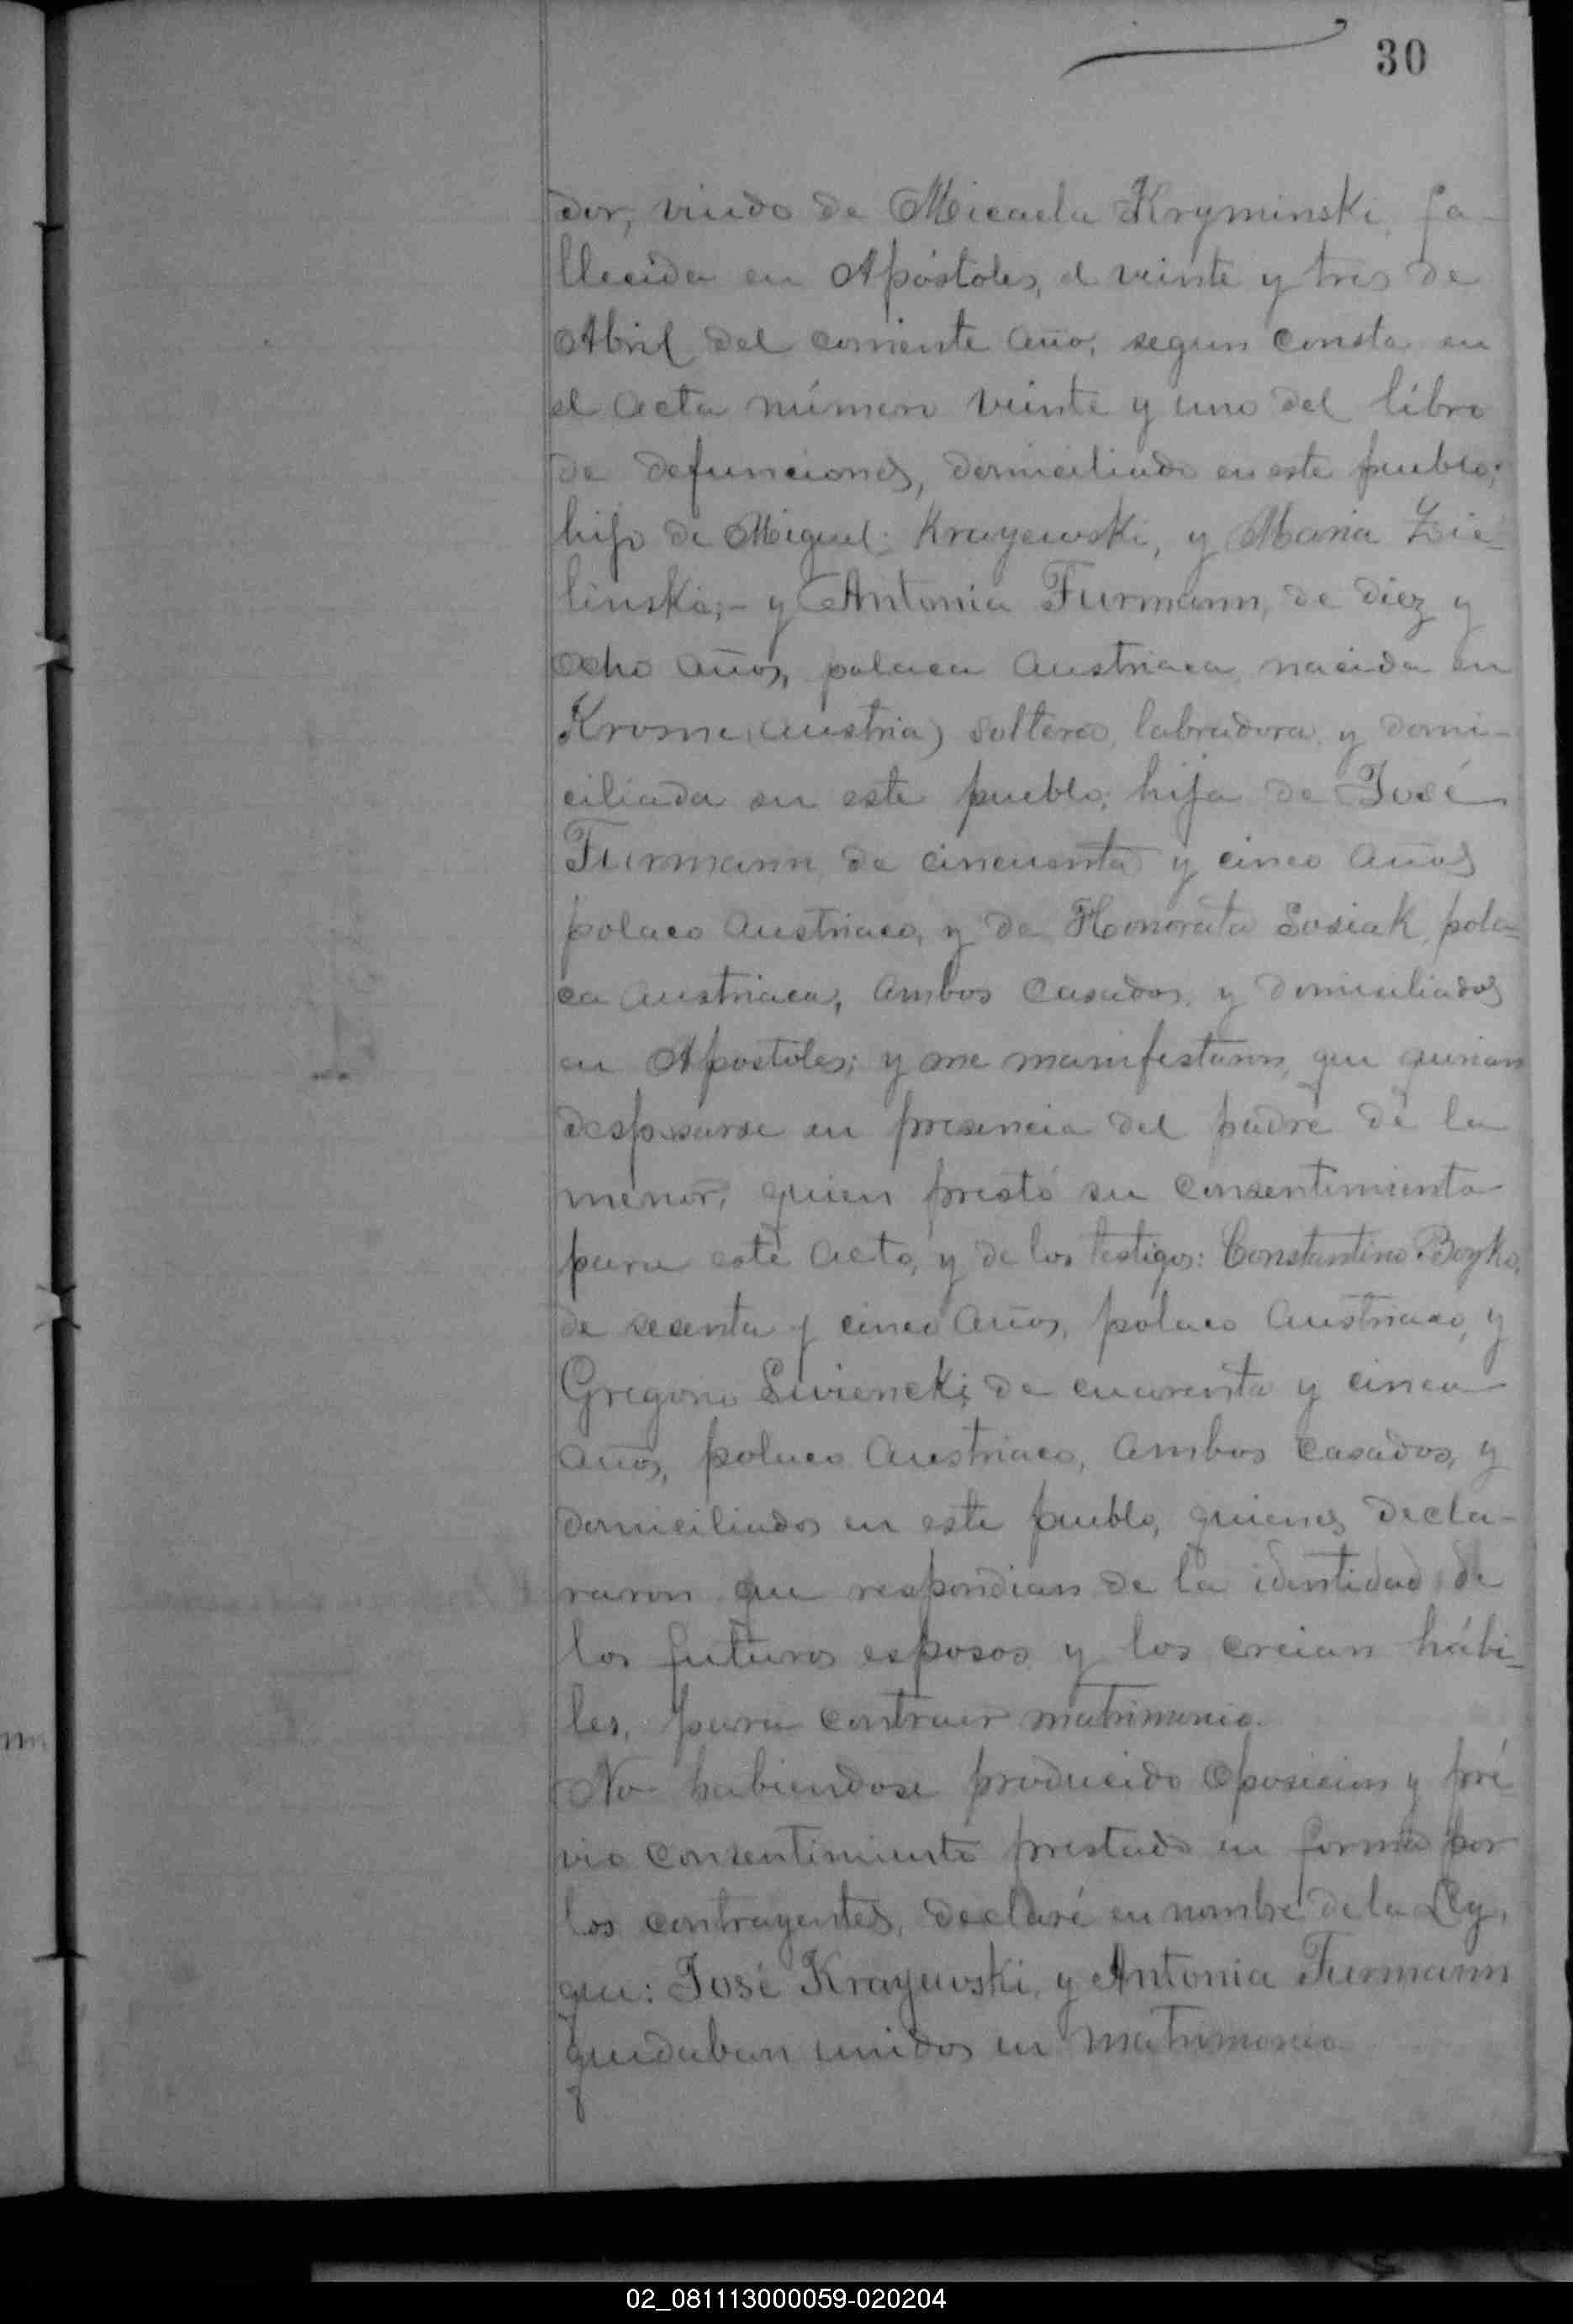 30
dor, viudo de Micaela Kryminski, fa-
llecida en Apóstoles, el veinte y tres de
Abril del corriente año, segun consta en
el acta número veinte y uno del libro
de defunciones, domiciliado en este pueblo;
hijo de Miguel Krayewski, y Maria Zie-
linski;- y Antonia Furmann, de diez y
ocho años, polaca austriaca nacida en
Krosni (Austria) soltera, labradora, y domi-
ciliada en este pueblo; hija de José
Furmann de cincuenta y cinco años
polaco austriaco, y de Honorata Sosiak, pola-
ca austriaca, ambos casados, y domiciliados
en Apostoles; y me manifestaron, que querian
desposarse en presencia del padre de la
menor, quien prestó su consentimiento
para este acto, y de los testigos: Constantino Boyko,
de sesenta y cinco años, polaco austriaco, y
Gregorio Swiencki, de cuarenta y cinco
años, polaco austriaco, ambos casados, y
domiciliados en este pueblo, quienes decla-
raron que respondian de la identidad de
los futuros esposos y los creian hábi-
les, para contraer matrimonio.
No habiendose producido oposicion y pré-
vio consentimiento prestado en forma por
los contrayentes, declaré en nombre de la Ley,
que: José Krayewski, y Antonia Furmann
quedaban unidos en matrimonio
02_081113000059-020204